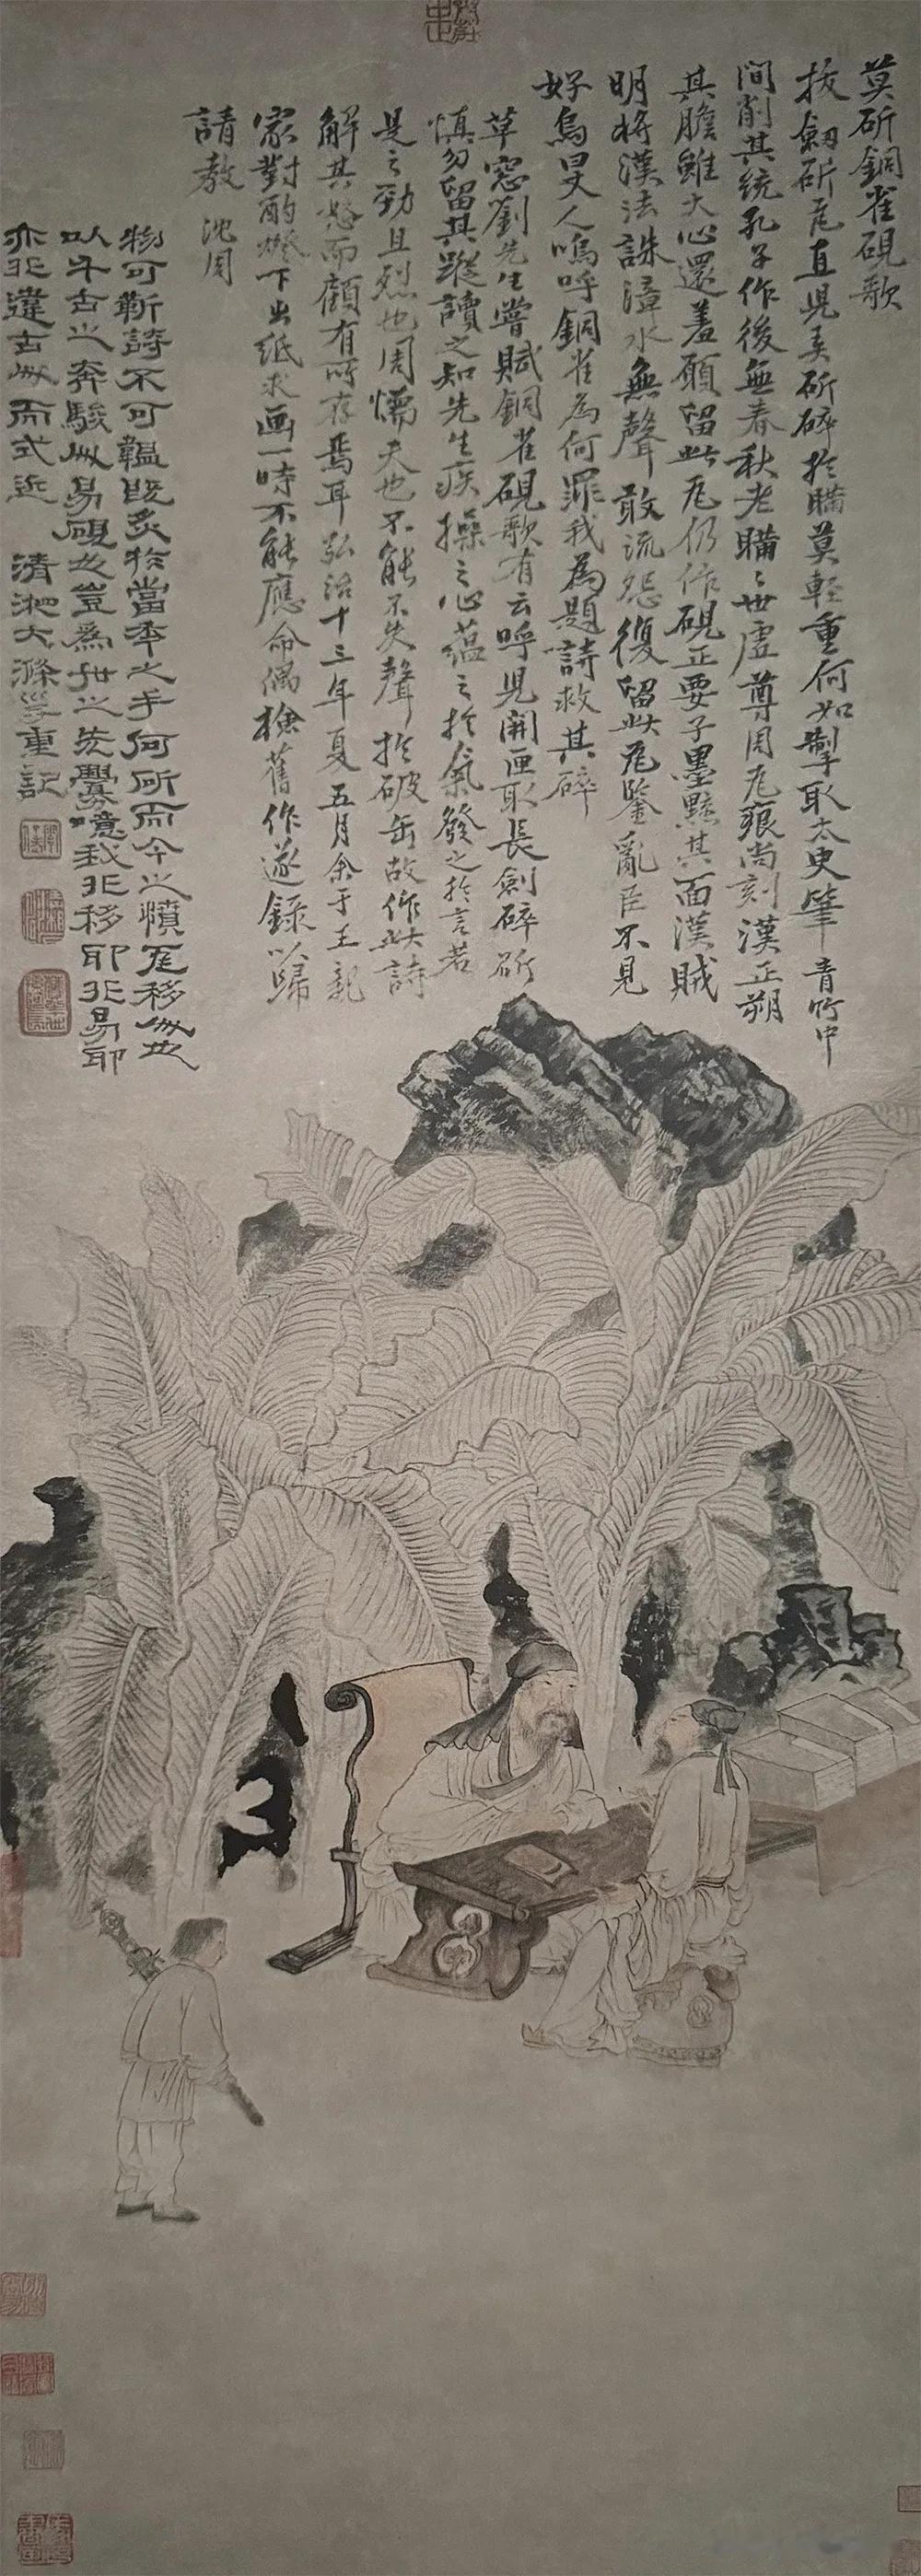 莫斫銅雀硯歌
拔劒斫瓦直兒戲斫碎於瞞莫輕重何如掣取太史筆青竹中
間削其統孔子作後無春秋老瞞瞞世虛尊周瓦痕尚刻漢正朔
其膽雖大心還羞願留此瓦仍作硯正要子墨黥其面漢賊
明將漢法誅漳水無聲敢流怨復留此瓦鑒亂臣不見
好烏旻人嗚呼銅雀為何罪我為題詩救其碎
草窓劉先生嘗賦銅雀硯歌有云呼兒開匣取長劍碎斫
慎勿留其蹤讀之知先生疾操之心蘊之於氣發之於言若
是之勁且烈也周懦夫也不能不失聲於破缶故作此詩
解其怒而顧有所存焉耳弘治十三年夏五月余于王親
家對酌燈下出紙求画一時不能應命偶撿舊作遂錄以歸
請教 沈周
物可靳詩不可韞既炙於當年之手何所而今之憤瓦移似也
以千古之奔駿似易硯故豈為世之先舉噫我非移耶非易耶
亦非違古似而式近 清湘大滌子重記